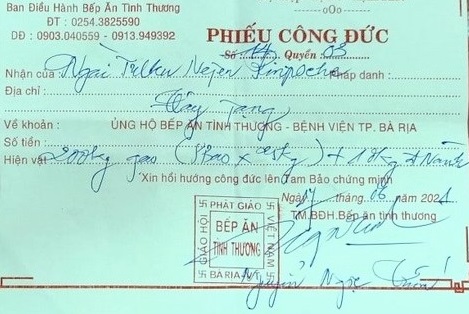 Ban Điều Hành Bếp Ăn Tình Thương
ĐT : 0254.3825590
DĐ : 0903.040559 - 0913.949392
oOo
PHIẾU CÔNG ĐỨC
Số : Quyển 03
Nhận của Ngài Pháp danh :
Địa chỉ : Tây tạng
Về khoản : ỦNG HỘ BẾP ĂN TÌNH THƯƠNG - BỆNH VIỆN TP. BÀ RỊA
Số tiền :
Hiện vật 200kg gạo
Xin hồi hướng công đức lên Tam Bảo chứng minh
Ngày tháng năm
TM.BĐH.Bếp ăn tình thương
GIÁO HỘI PHẬT GIÁO VIỆT NAM
BẾP ĂN
TÌNH THƯƠNG
BÀ RỊA
Nguyễn Ngọc